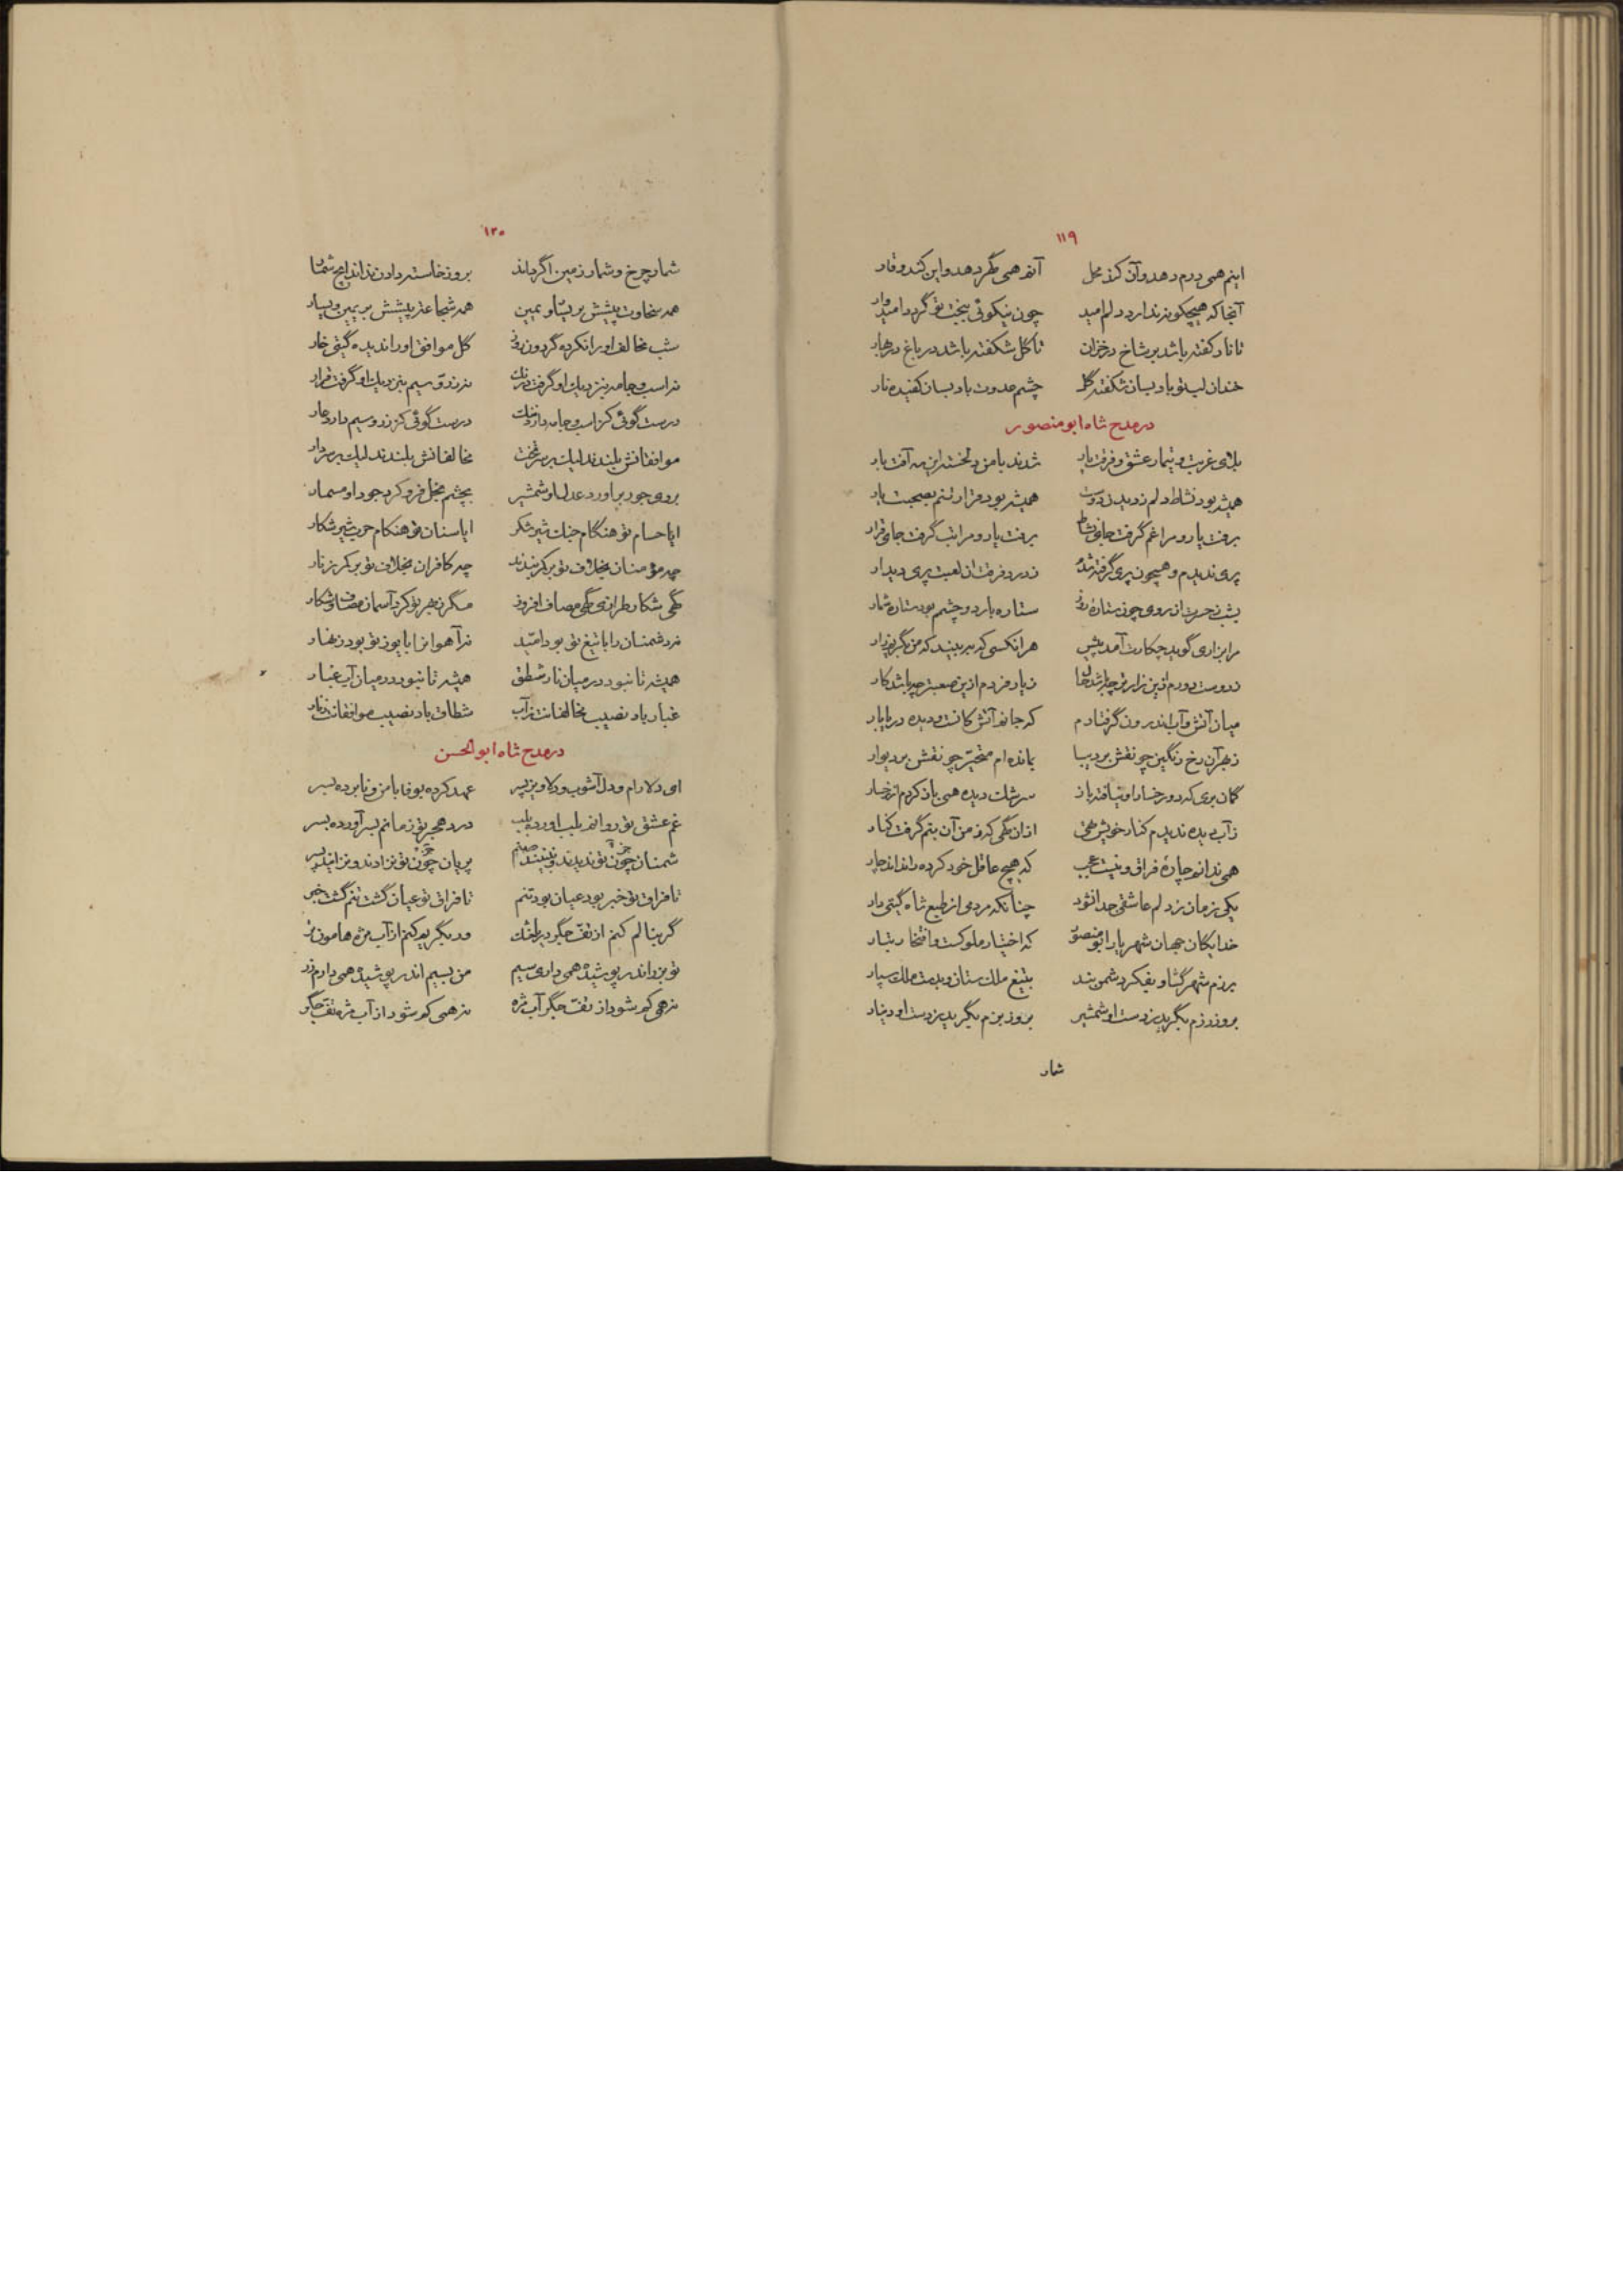 ۱۱۹
اینم همی درم دهد و آن کند محل آنم همی گهر دهد و این کند وقار
آنجا که هیچگونه ندارد دلم امید چون نیکوئی ببخت تو گردد امیدوار
تا نار کفته باشد بر شاخ در خزان تا گل شکفته باشد در باغ در بهار
خندان لب تو باد بسان شکفته گل چشم عدوت باد بسان کفیده نار
در مدح شاه ابو منصور
بلای غربت و تیمار عشق و فرقت یار شدند با من دلخسته این سه آفت یار
همیشه بود نشاط دلم ز دیدن دوست همیشه بود قرار تنم بصحبت یار
برفت یار و مرا غم گرفت جای نشاط برفت یار و مرا تب گرفت جای قرار
پری ندیدم و همچون پری گرفته شدم ز درد فرقت آن لعبت پری دیدار
بشب ز حسرت آن روی چون ستارهٔ روز ستاره بارد و چشمم بود ستاره شمار
مرا بزاری گوید چکارت آمد پیش هر آنکسی که ببیند که من بگریم زار
ز دوست دورم ازین زارتر چه باشد حال ز یار فردم ازین صعبتر چه باشد کار
میان آتش و آب اندرون گرفتارم که جانم آتش کانست و دیده دریابار
ز بهر آن رخ رنگین چو نقش بر دیبا بمانده‌ام متحیر چو نقش بر دیوار
گمان بری که دو رخسار او نیافته باز سرشک دیده همی باز کردم از رخسار
ز آب دیده ندیدم کنار خویش تهی از آن گهی که ز من آن بتم گرفت کنار
همی ندانم چارهٔ فراق و نیست عجب که هیچ عاقل خود کرده را نداند چار
یکی زمان ز دلم عاشقی جدا نشود چنانکه مردمی از طبع شاه گیتی دار
خدایگان جهان شهریار ابو منصور که اختیار ملوکست و افتخار تبار
برزم شهر گشا و بفکر دشمن بند بتیغ ملک ستان و بدست ملک سپار
بروز رزم بگرید ز دست او شمشیر بروز بزم بگرید ز دست او دینار
شمار
۱۲۰
شمار چرخ و شمار زمین اگر داند بروز خاسته دادن نداند ایچ شمار
همه سخاوت پیشش بر یسار و یمین همه شجاعت پیشش بر یمین و یسار
شب مخالف او را نکرده گردون روز گل موافق او را ندیده گیتی خار
نه اسب و جامه بنزدیک او گرفت درنگ نه زر و سیم بنزدیک او گرفت قرار
درست گوئی کز اسب و جامه دارد ننگ درست گوئی کز زر و سیم دارد عار
موافقانش بلندند لیک بر سر تخت مخالفانش بلندند لیک بر سر دار
بروی جور برآورد عدل او شمشیر بچشم بخل فرو کرد جود او مسمار
ایا حسام تو هنگام جنگ شیر شکر ایا سنان تو هنگام حرب شیر شکار
چه مؤمنان بخلاف تو بر کمر بندند چه کافران بخلاف تو بر کمر زنار
گهی شکار طرازی گهی مصاف افروز مگر ز بهر تو کرد آسمان مصاف و شکار
نه دشمنان را با تیغ تو بود امید نه آهوان را با یوز تو بود زنهار
همیشه تا نبود در میان نار شطق همیشه تا نبود در میان آب غبار
غبار باد نصیب مخالفانت ز آب شطاق باد نصیب موافقانت ز نار
در مدح شاه ابوالحسن
ای دلارام و دل آشوب و دلاویز پسر عهد کرده بوفا با من و نابرده بسر
غم عشق تو روانم بلب آورد بلب درد هجر تو زمانم بسر آورده بسر
شمنان چون تو ندیدند و نبینند صنم پریان چون تو نزادند و نزایند پسر
تا فراق تو خبر بود عیان بود تنم تا فراق تو عیان گشت تنم گشت خبر
گر بنالم کنم از تف جگر دریا خشک ور بگریم کنم از آب مژه هامون تر
تو بزر اندر پوشیده همی داری سیم من بسیم اندر پوشیده همی دارم زر
نه همی کم شود از تف جگر آب مژه نه همی کم شود از آب مژه تف جگر